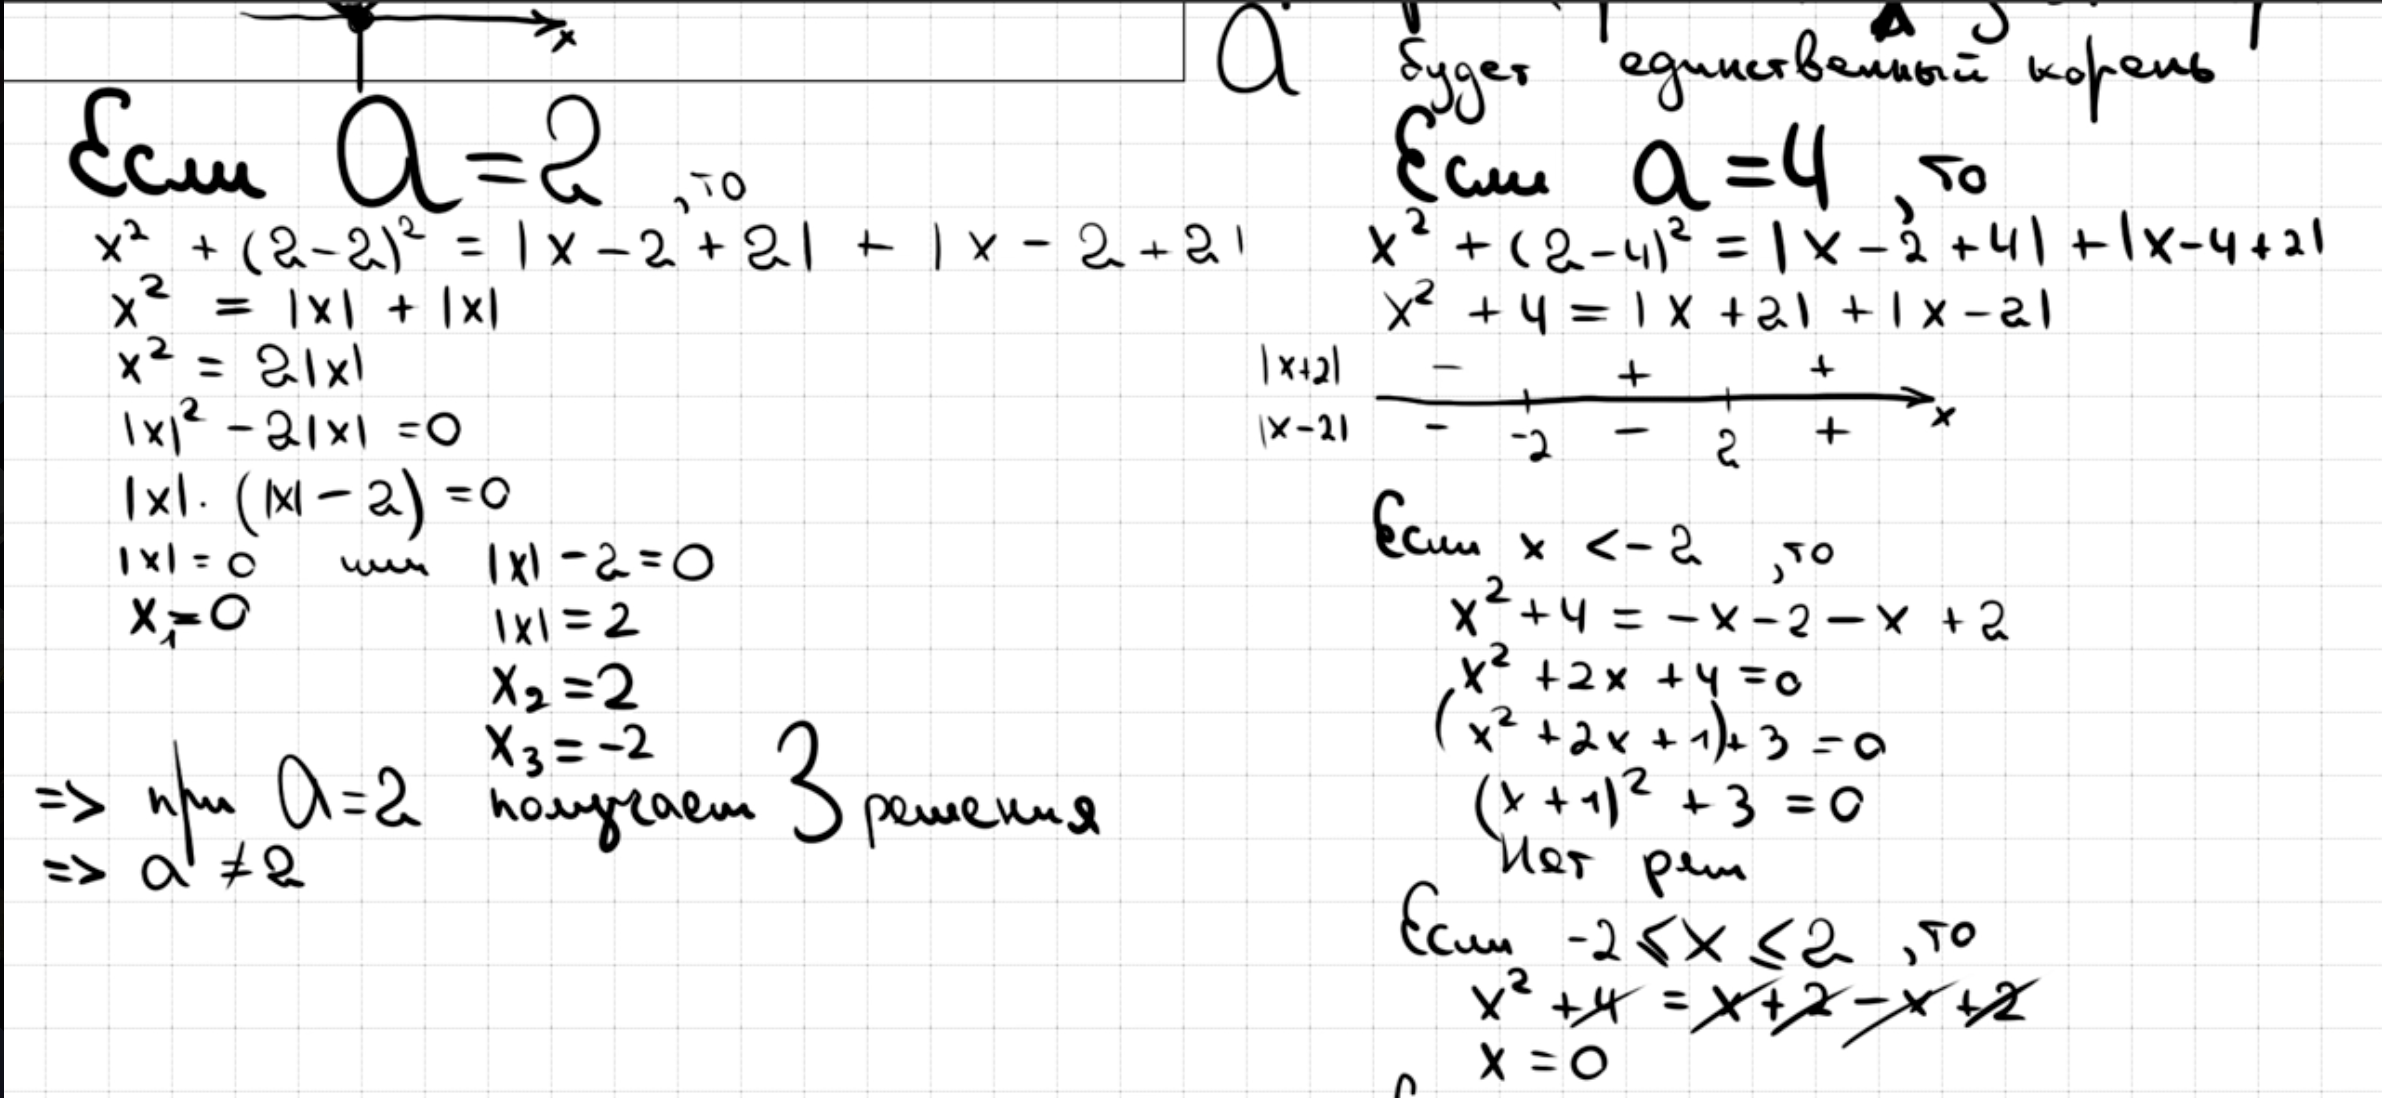 x
a
будет единственный корень
Если a=2, то
x² + (2-2)² = |x-2+2| + |x-2+2|
x² = |x| + |x|
x² = 2|x|
|x|² - 2|x| = 0
|x|·(|x|-2) = 0
|x| = 0 или |x| - 2 = 0
x₁ = 0
|x| = 2
x₂ = 2
x₃ = -2
=> при a=2 получаем 3 решения
=> a ≠ 2
Если a=4, то
x² + (2-4)² = |x-2+4| + |x-4+2|
x² + 4 = |x+2| + |x-2|
|x+2| - + +
|x-2| - -2 - 2 + x
Если x < -2, то
x² + 4 = -x-2-x+2
x² + 2x + 4 = 0
(x² + 2x + 1) + 3 = 0
(x+1)² + 3 = 0
Нет реш
Если -2 ≤ x ≤ 2, то
x² + 4 = x+2-x+2
x = 0